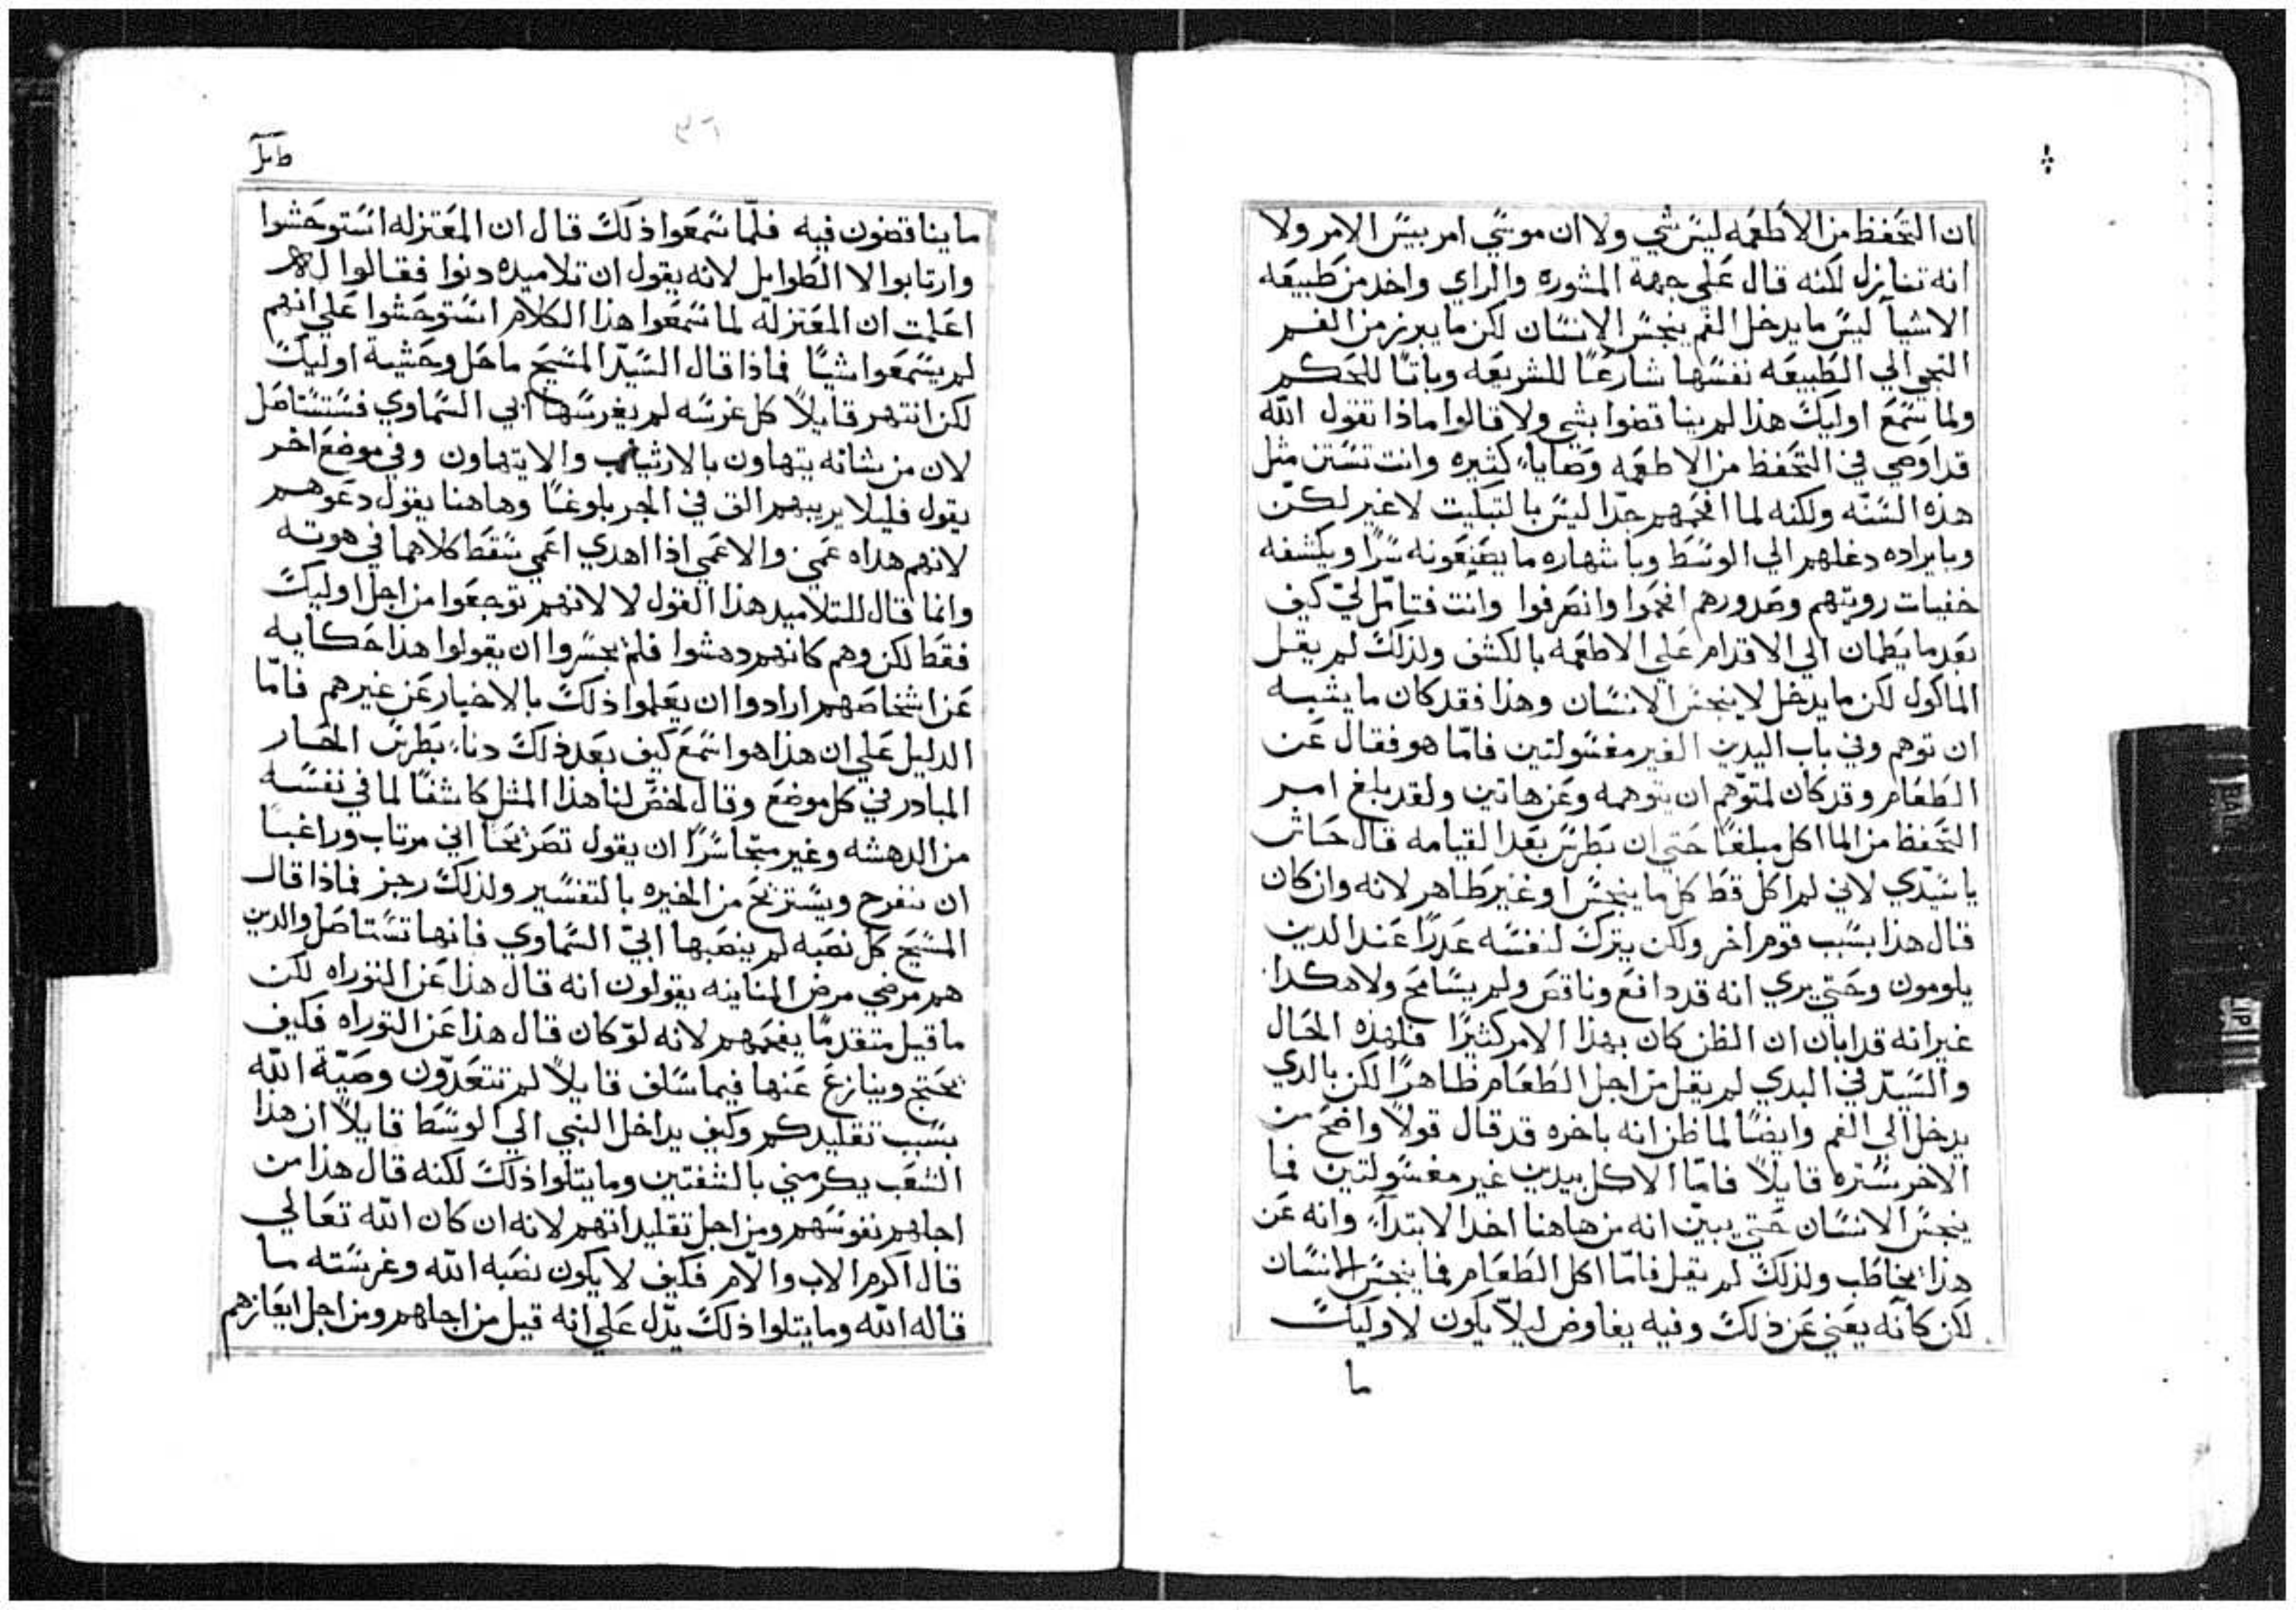 ان التحفظ من الاطعمه ليس شي ولا ان موسي امر بيس الامر ولا
انه تنازل لكنه قال علي جهة المشوره والراي واخد من طبيعه
الاشيآ ليس ما يدخل الفم ينجس الانسان لكن ما يبرز من الفم
التجي الي الطبيعه نفسها شارعًا للشريعه وباتا للحكم
ولما سمع اوليك هذا لم يناقضوا بشي ولا قالوا ماذا تقول الله
قد اوصي في التحفظ من الاطعمه وصايا كثيره وانت تستن مثل
هذه السنه ولكنه لما افحمهم جدّا ليس بالتبكيت لا غير لكن
وبايراده دغلهم الي الوسط وباشهاره ما يصنعونه سرًا ويكشفه
خفيات رويتهم وصدورهم افحموا وانصرفوا وانت فتامّل لي كيف
بعد ما يطمان الي الاقدام علي الاطعمه بالكشف ولذلك لم يقل
الماكول لكن ما يدخل لا ينجس الانسان وهذا فقد كان ما يشبه
ان توهم وفي باب اليدين الغير مغسولتين فامّا هو فقال عن
الطعام وقد كان لمتوهم ان يتوهمه وعن هاتين ولقد بلغ امر
التحفظ من الماكل مبلغًا حتي ان بطرس بعد القيامه قال حاش
يا سيّدي لاني لم اكل قط كل ما ينجس او غير طاهر لانه وان كان
قال هذا بسبب قوم اخر ولكن يترك لنفسه عدرًا عند الدين
يلومون وحتي يري انه قد دافع وناقض ولم يسامح ولا هكدا
غير انه قد ابان ان الظن كان بهذا الامر كثيرًا فلهذه الحال
والسيّد في البدي لم يقل من اجل الطعام ظاهرًا لكن بالدي
يدخل الي الفم وايضًا لما ظن انه باخره قد قال قولاً واضح من
الاخر ستره قايلاً فامّا الاكل بيدين غير مغسولتين فما
ينجس الانسان حتي يبيّن انه من هاهنا اخد الابتدآء وانه عن
هذا يخاطب ولذلك لم يقل فامّا اكل الطعام فما ينجس الانسان
لكن كانّه يعني عن ذلك وفيه يفاوض ليلاّ يكون لاوليك
ما
ما يناقضون فيه فلمّا سمعوا ذلك قال ان المعتزله استوحشوا
وارتابوا لا الطوايل لانه يقول ان تلاميده دنوا فقالوا له
اعلمت ان المعتزله لما سمعوا هذا الكلام استوحشوا علي انهم
لم يسمعوا شيًا فماذا قال السيّد المسيح ما حل وحشية اوليك
لكن انتهر قايلاً كل غرسه لم يغرسها ابي السماوي فستستاصل
لان من شانه يتهاون بالارثياب والا يتهاون وفي موضع اخر
يقول فليلا يريبهم الق في البحر بلوغًا وهاهنا يقول دعوهم
لانهم هداه عمي والاعمي اذا اهدي اعمي سقط كلاهما في هوته
وانما قال للتلاميد هذا القول لا لانهم توجعوا من اجل اوليك
فقط لكن وهم كانهم دهشوا فلم يجسروا ان يقولوا هذا حكايه
عن اشخاصهم ارادوا ان يعلموا ذلك بالاخبار عن غيرهم فامّا
الدليل علي ان هذا هو اسمع كيف بعد ذلك دنا بطرس الحار
المبادر في كل موضع وقال لخص لنا هذا المثل كاشفًا لما في نفسه
من الدهشه وغير متجاسرًا ان يقول تصريحًا اني مرتاب وراغبًا
ان ننفرج ويستريح من الحيره بالتفسير ولذلك رجز فماذا قال
المسيح كل نصبه لم ينصبها ابيّ السماوي فانها تستاصل والدين
هم مرضي مرض المنانيه يقولون انه قال هذا عن التوراه لكن
ما قيل متقدمًا يفحمهم لانه لوّ كان قال هذا عن التوراه فكيف
يحتج وينازع عنها فيما سلف قايلاً لم تتعدّون وصيّة الله
بسبب تقليدكم وكيف يداخل النبي الي الوسط قايلاً ان هذا
الشعب يكرمني بالشفتين وما يتلوا ذلك لكنه قال هذا من
اجلهم نفوسهم ومن اجل تقليداتهم لانه ان كان الله تعالي
قال اكرم الاب والاّم فكيف لا يكون نصبه الله وغرسته ما
قاله الله وما يتلوا ذلك يدّل علي انه قيل من اجلهم ومن اجل ايعازهم